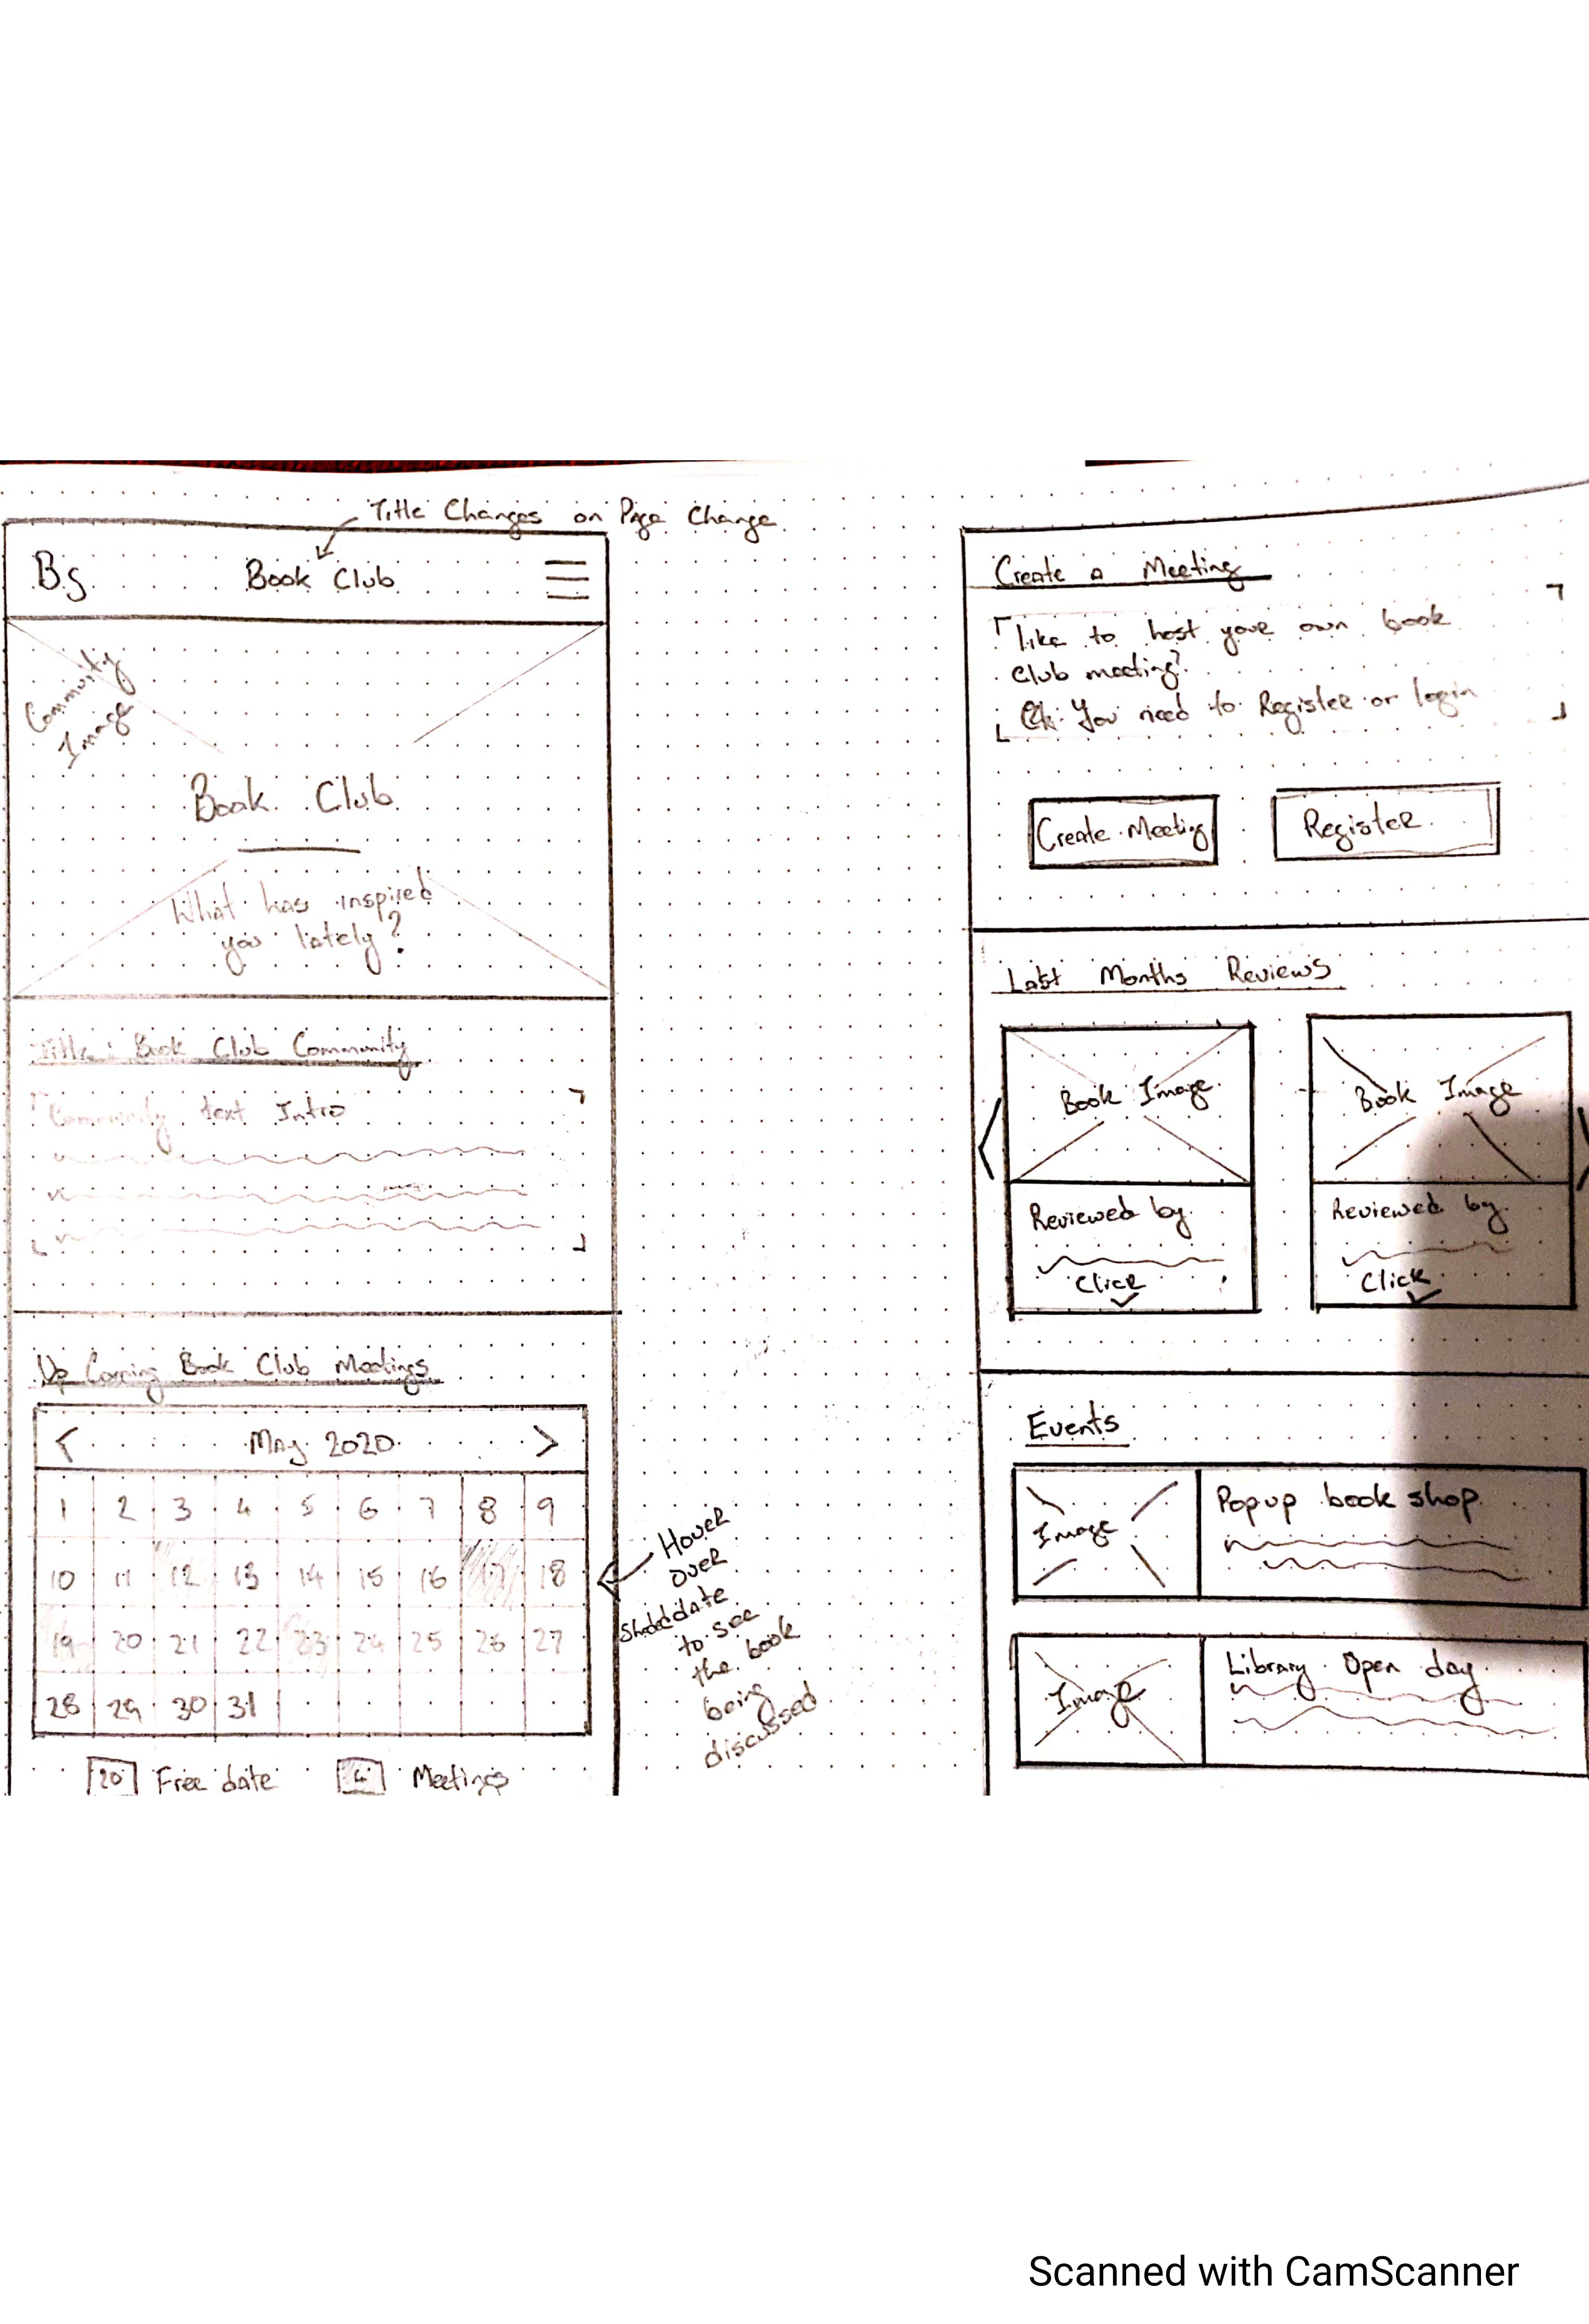 Title Changes on Page Change
Bs Book Club
Community
Image
Book Club
What has inspired
you lately?
Title: Book Club Community
Community text Intro
Up Coming Book Club Meetings
< May 2020 >
1 2 3 4 5 6 7 8 9
10 11 12 13 14 15 16 17 18
19 20 21 22 23 24 25 26 27
28 29 30 31
20 Free date 4 Meetings
Hover
over
date
to see
the book
being
discussed
Create a Meeting
like to host your own book
club meeting?
You need to Register or login
Create Meeting Register
Last Months Reviews
Book Image Book Image
Reviewed by Reviewed by
Click Click
Events
Image Popup book shop
Image Library Open day
Scanned with CamScanner